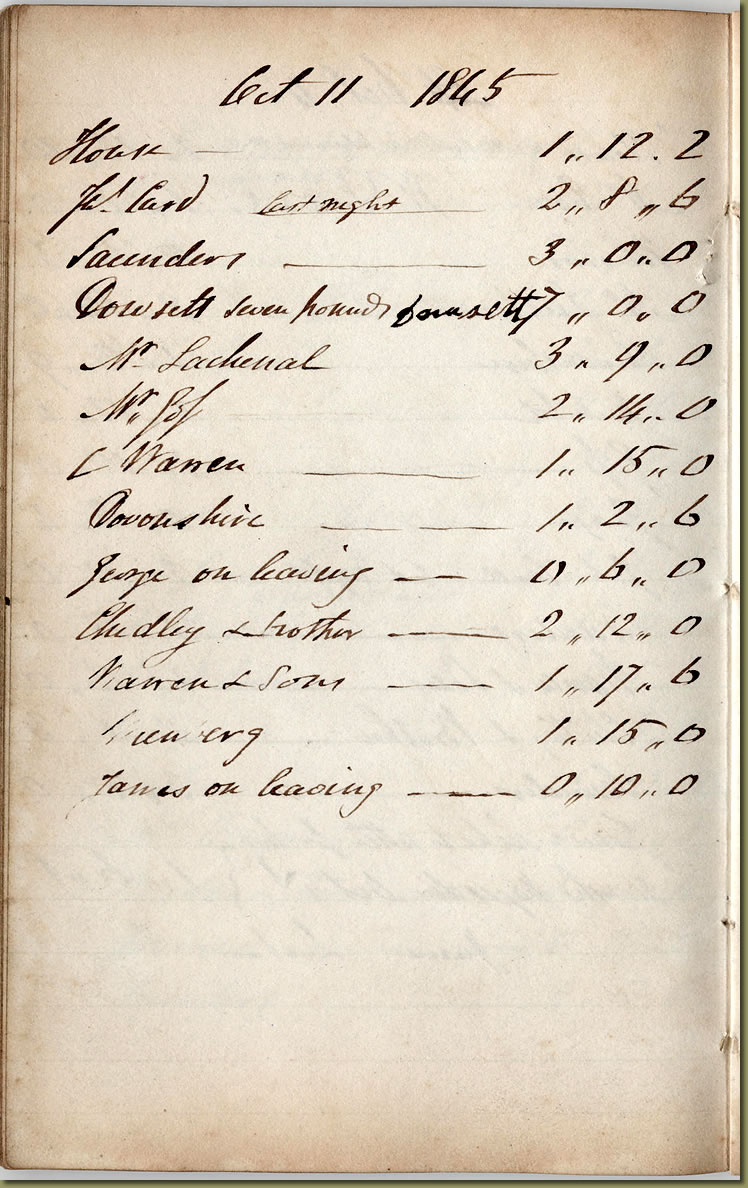 Oct 11 1865
House — 1 ,, 12 . 2
Jas. Card last night — 2 ,, 8 ,, 6
Saunders — 3 ,, 0 ,, 0
Dowsett seven pounds Dowsett 7 ,, 0 ,, 0
Mr. Lachenal 3 ,, 9 ,, 0
Mr. 2 ,, 14 ,, 0
C Warren — 1 ,, 15 ,, 0
Devonshire — 1 ,, 2 ,, 6
George on leaving — 0 ,, 6 ,, 0
Chidley & brother — 2 ,, 12 ,, 0
Warren & Sons — 1 ,, 17 ,, 6
1 ,, 15 ,, 0
James on leaving — 0 ,, 10 ,, 0